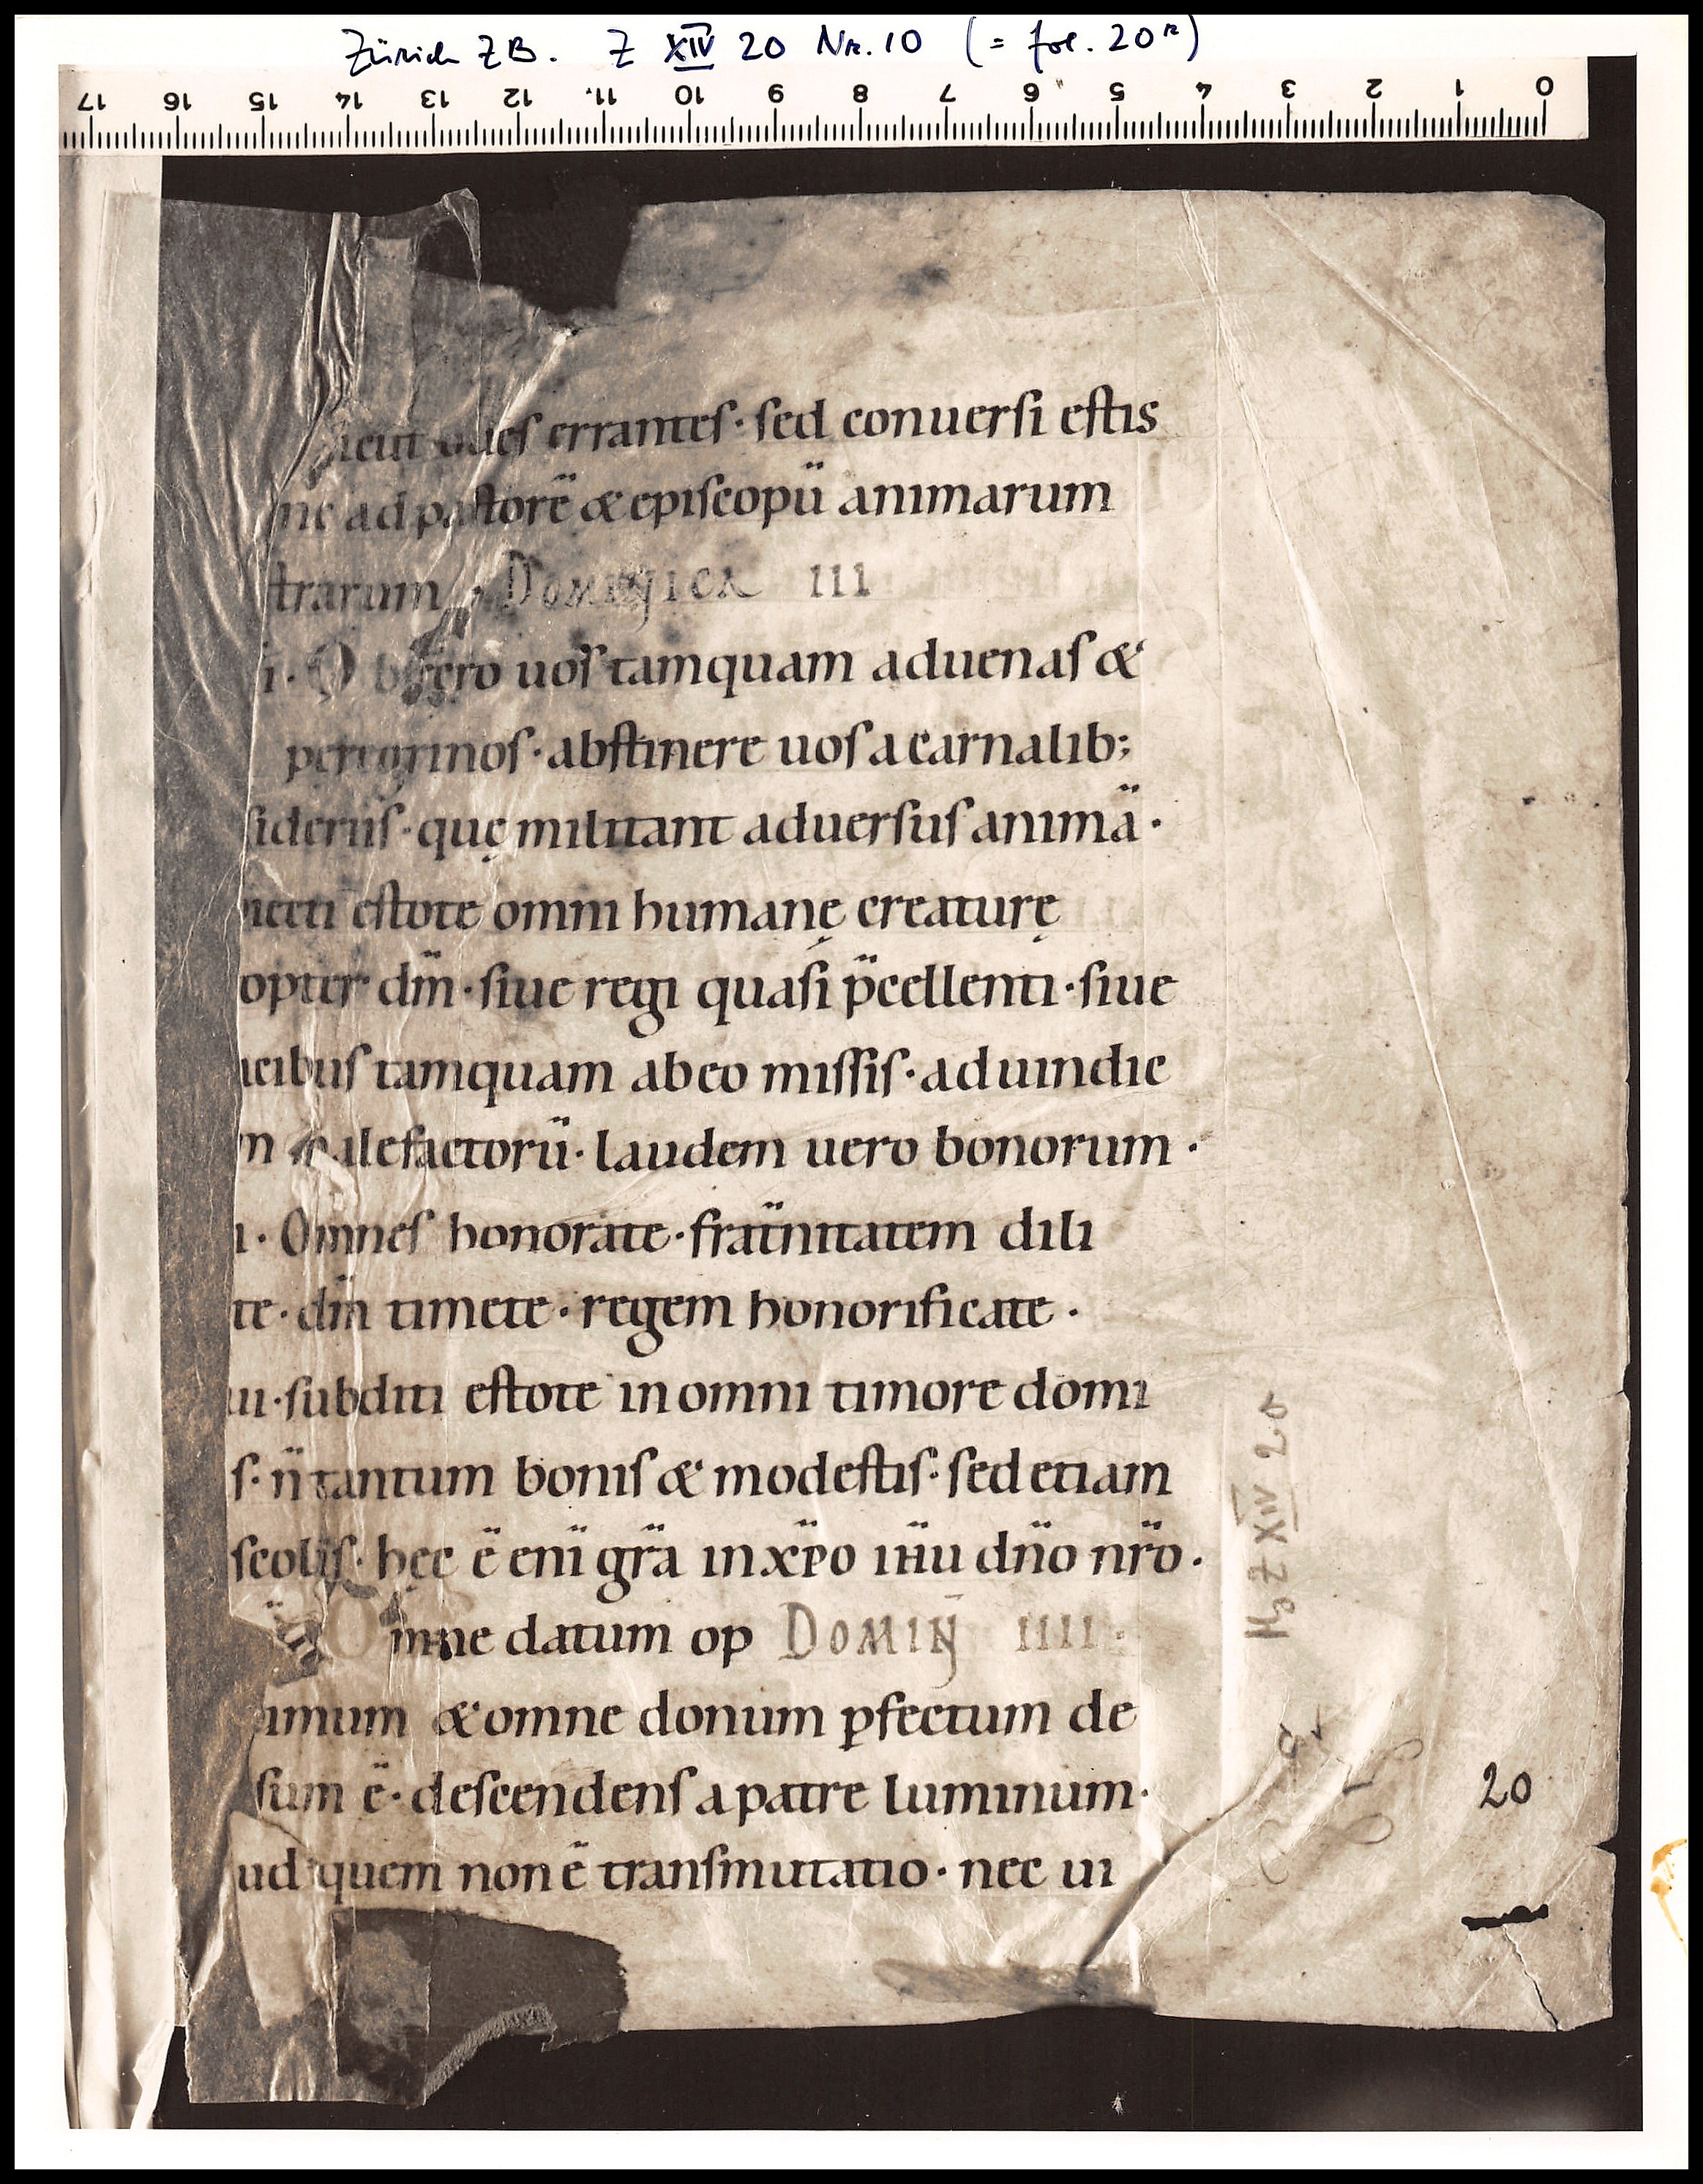 Zürich ZB. Z XIV 20 Nr. 10 (= fol. 20r)
17 16 15 14 13 12 11 10 9 8 7 6 5 4 3 2 1 0
sicut oues errantes· sed conuersi estis
nc ad pastorē & episcopū animarum
trarum. Dominica III
i· Obsecro uos tamquam aduenas &
peregrinos· abstinere uos a carnalib;
sideriis· quę militant aduersus animā·
iecti estote omni humanę creaturę
opter dm̄· siue regi quasi p̄cellenti· siue
ucibus tamquam ab eo missis· ad uindic
m malefactorū· laudem uero bonorum·
i· Omnes honorate· frat̄nitatem dili
te· dm̄ timete· regem honorificate·
ui· subditi estote in omni timore domi
s· n̄ tantum bonis & modestis· sed etiam
scolis· hęc ē enī gr̄a in xp̄o ih̄u dn̄o nr̄o·
Omne datum op DOMIN IIII·
imum & omne donum pfectum de
sum ē· descendens a patre luminum·
ud quem non ē transmutatio· nec ui
Hs Z XIV 20
20